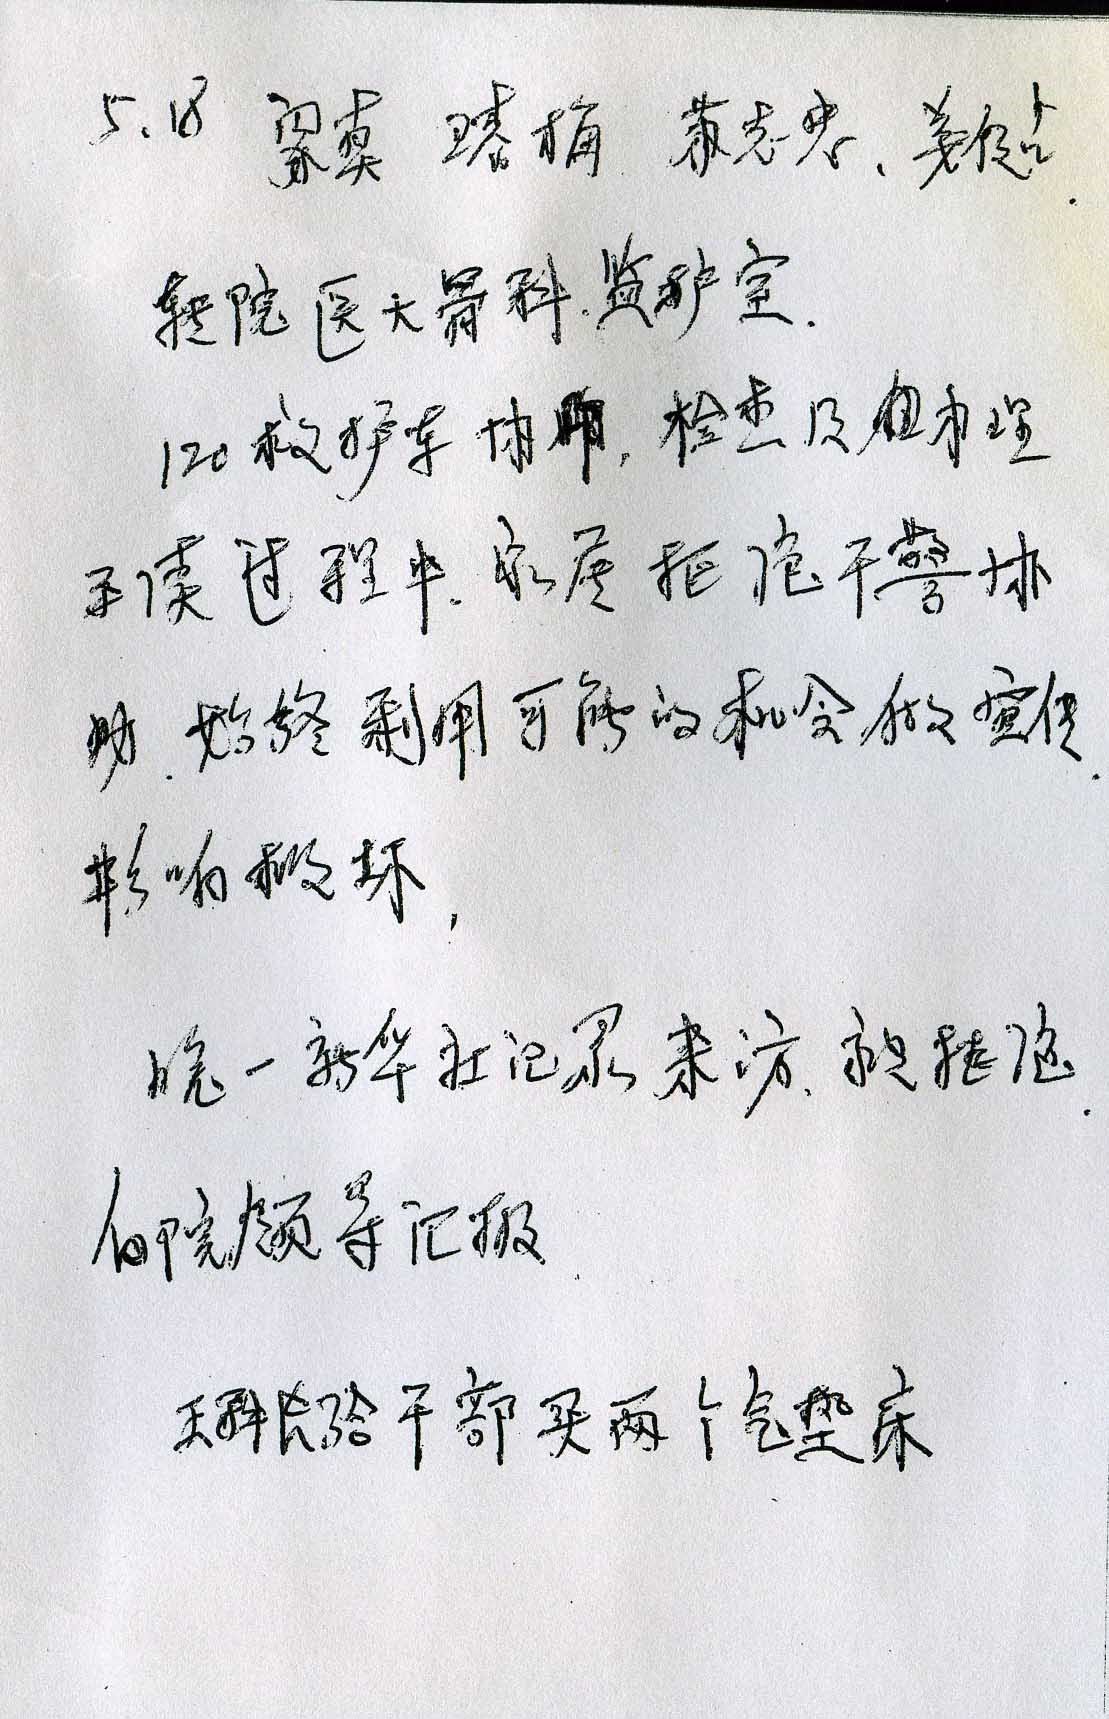 5.18 蒙真 瑃梅 苏志忠、姜
转院医大骨科.监护室.
120救护车协助,检查及办理
手续过程中.家属拒绝干警协
助.始终利用可能的机会做宣传.
影响极坏,
晚一新华社记录来访.被拒绝.
向院领导汇报
王科长给干部买两个气垫床